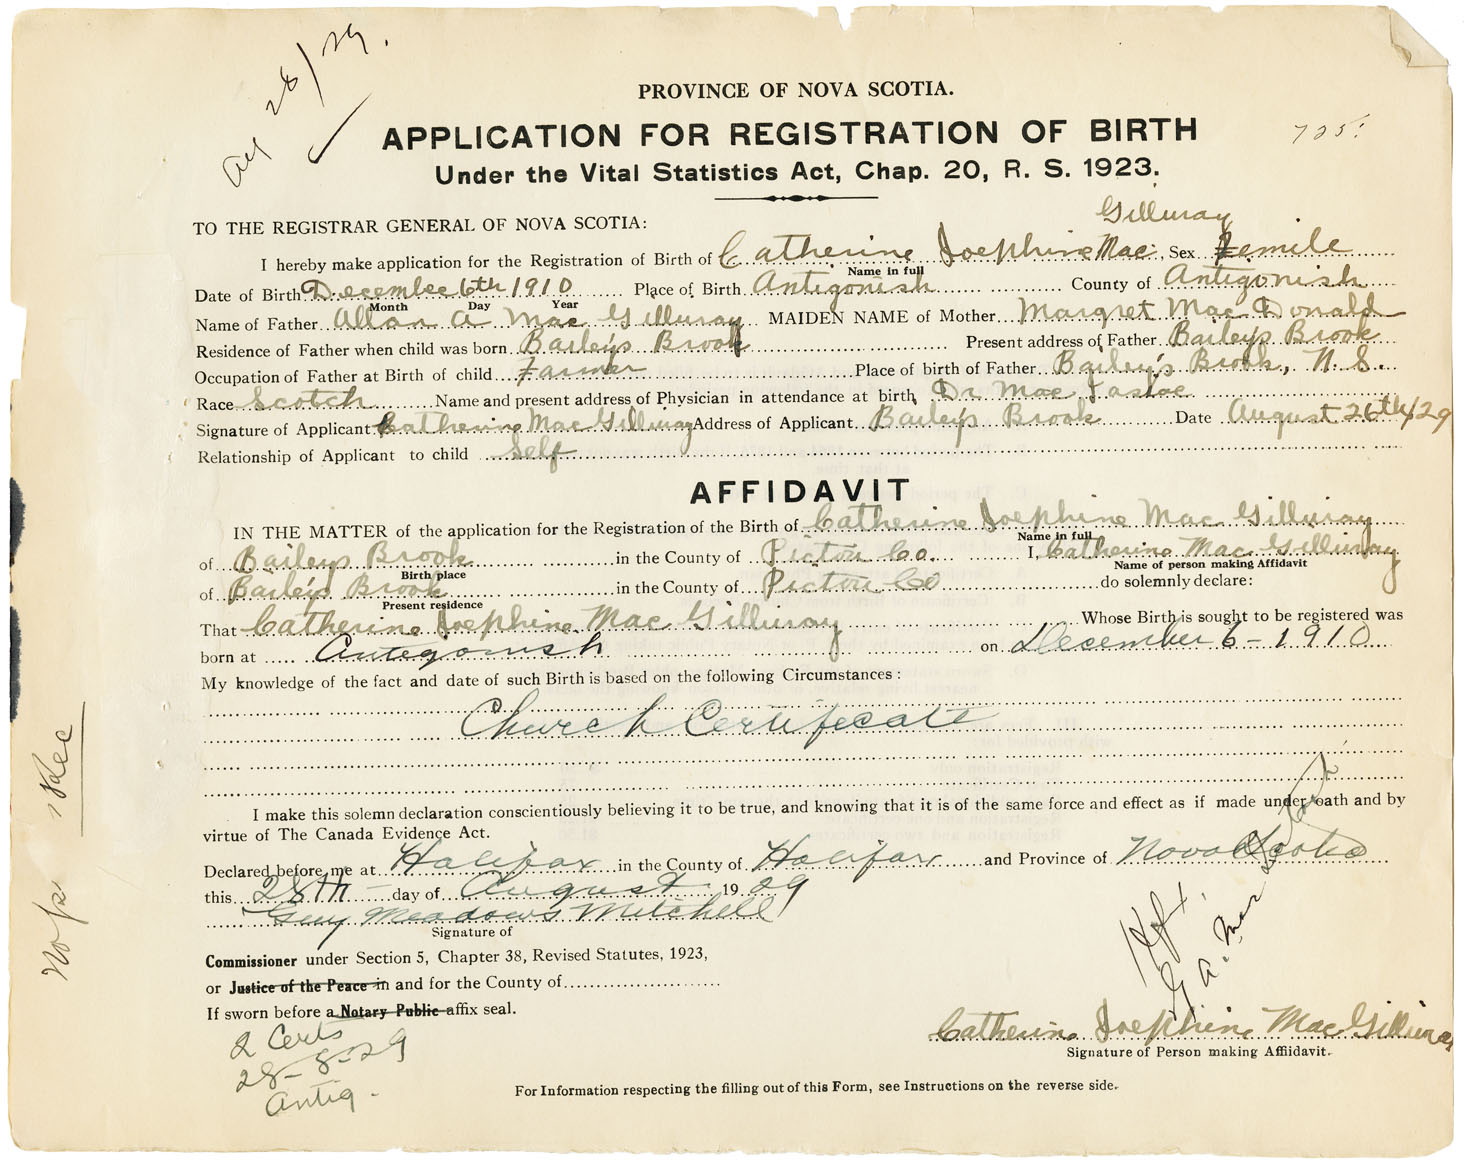 Aug 28/29.
PROVINCE OF NOVA SCOTIA.
APPLICATION FOR REGISTRATION OF BIRTH
725
Under the Vital Statistics Act, Chap. 20, R. S. 1923.
TO THE REGISTRAR GENERAL OF NOVA SCOTIA:
Gillivray
I hereby make application for the Registration of Birth of Catherine Joephine Mac Sex Femile
Name in full
Date of Birth December 6th 1910 Place of Birth Antigonish County of Antigonish
Month Day Year
Name of Father Allan A Mac Gillivray MAIDEN NAME of Mother Margret Mac Donald
Residence of Father when child was born Baileys Brook Present address of Father Baileys Brook
Occupation of Father at Birth of child Farmer Place of birth of Father Bailey's Brook, N. S.
Race Scotch Name and present address of Physician in attendance at birth, Dr Mac
Signature of Applicant Catherine Mac Gillivray Address of Applicant Baileys Brook Date August 26th/29
Relationship of Applicant to child Self
AFFIDAVIT
IN THE MATTER of the application for the Registration of the Birth of Catherine Joephine Mac Gillivray
Name in full
of Baileys Brook in the County of Pictou Co. I, Catherine Mac Gillivray
Birth place Name of person making Affidavit
of Baileys Brook in the County of Pictou Co do solemnly declare:
Present residence
That Catherine Joephine Mac Gillivray Whose Birth is sought to be registered was
born at Antigonish on December 6 - 1910
My knowledge of the fact and date of such Birth is based on the following Circumstances:
Church Certificate
I make this solemn declaration conscientiously believing it to be true, and knowing that it is of the same force and effect as if made under oath and by
virtue of The Canada Evidence Act.
Declared before me at Halifax in the County of Halifax and Province of Nova Scotia
this 28th day of August 1929
Guy Meadows Mitchell
Signature of
Commissioner under Section 5, Chapter 38, Revised Statutes, 1923,
or Justice of the Peace in and for the County of
If sworn before a Notary Public affix seal.
2 Certs
28-8-29
Antig.
Catherine Joephine Mac Gillivray
Signature of Person making Affiidavit.
For Information respecting the filling out of this Form, see Instructions on the reverse side.